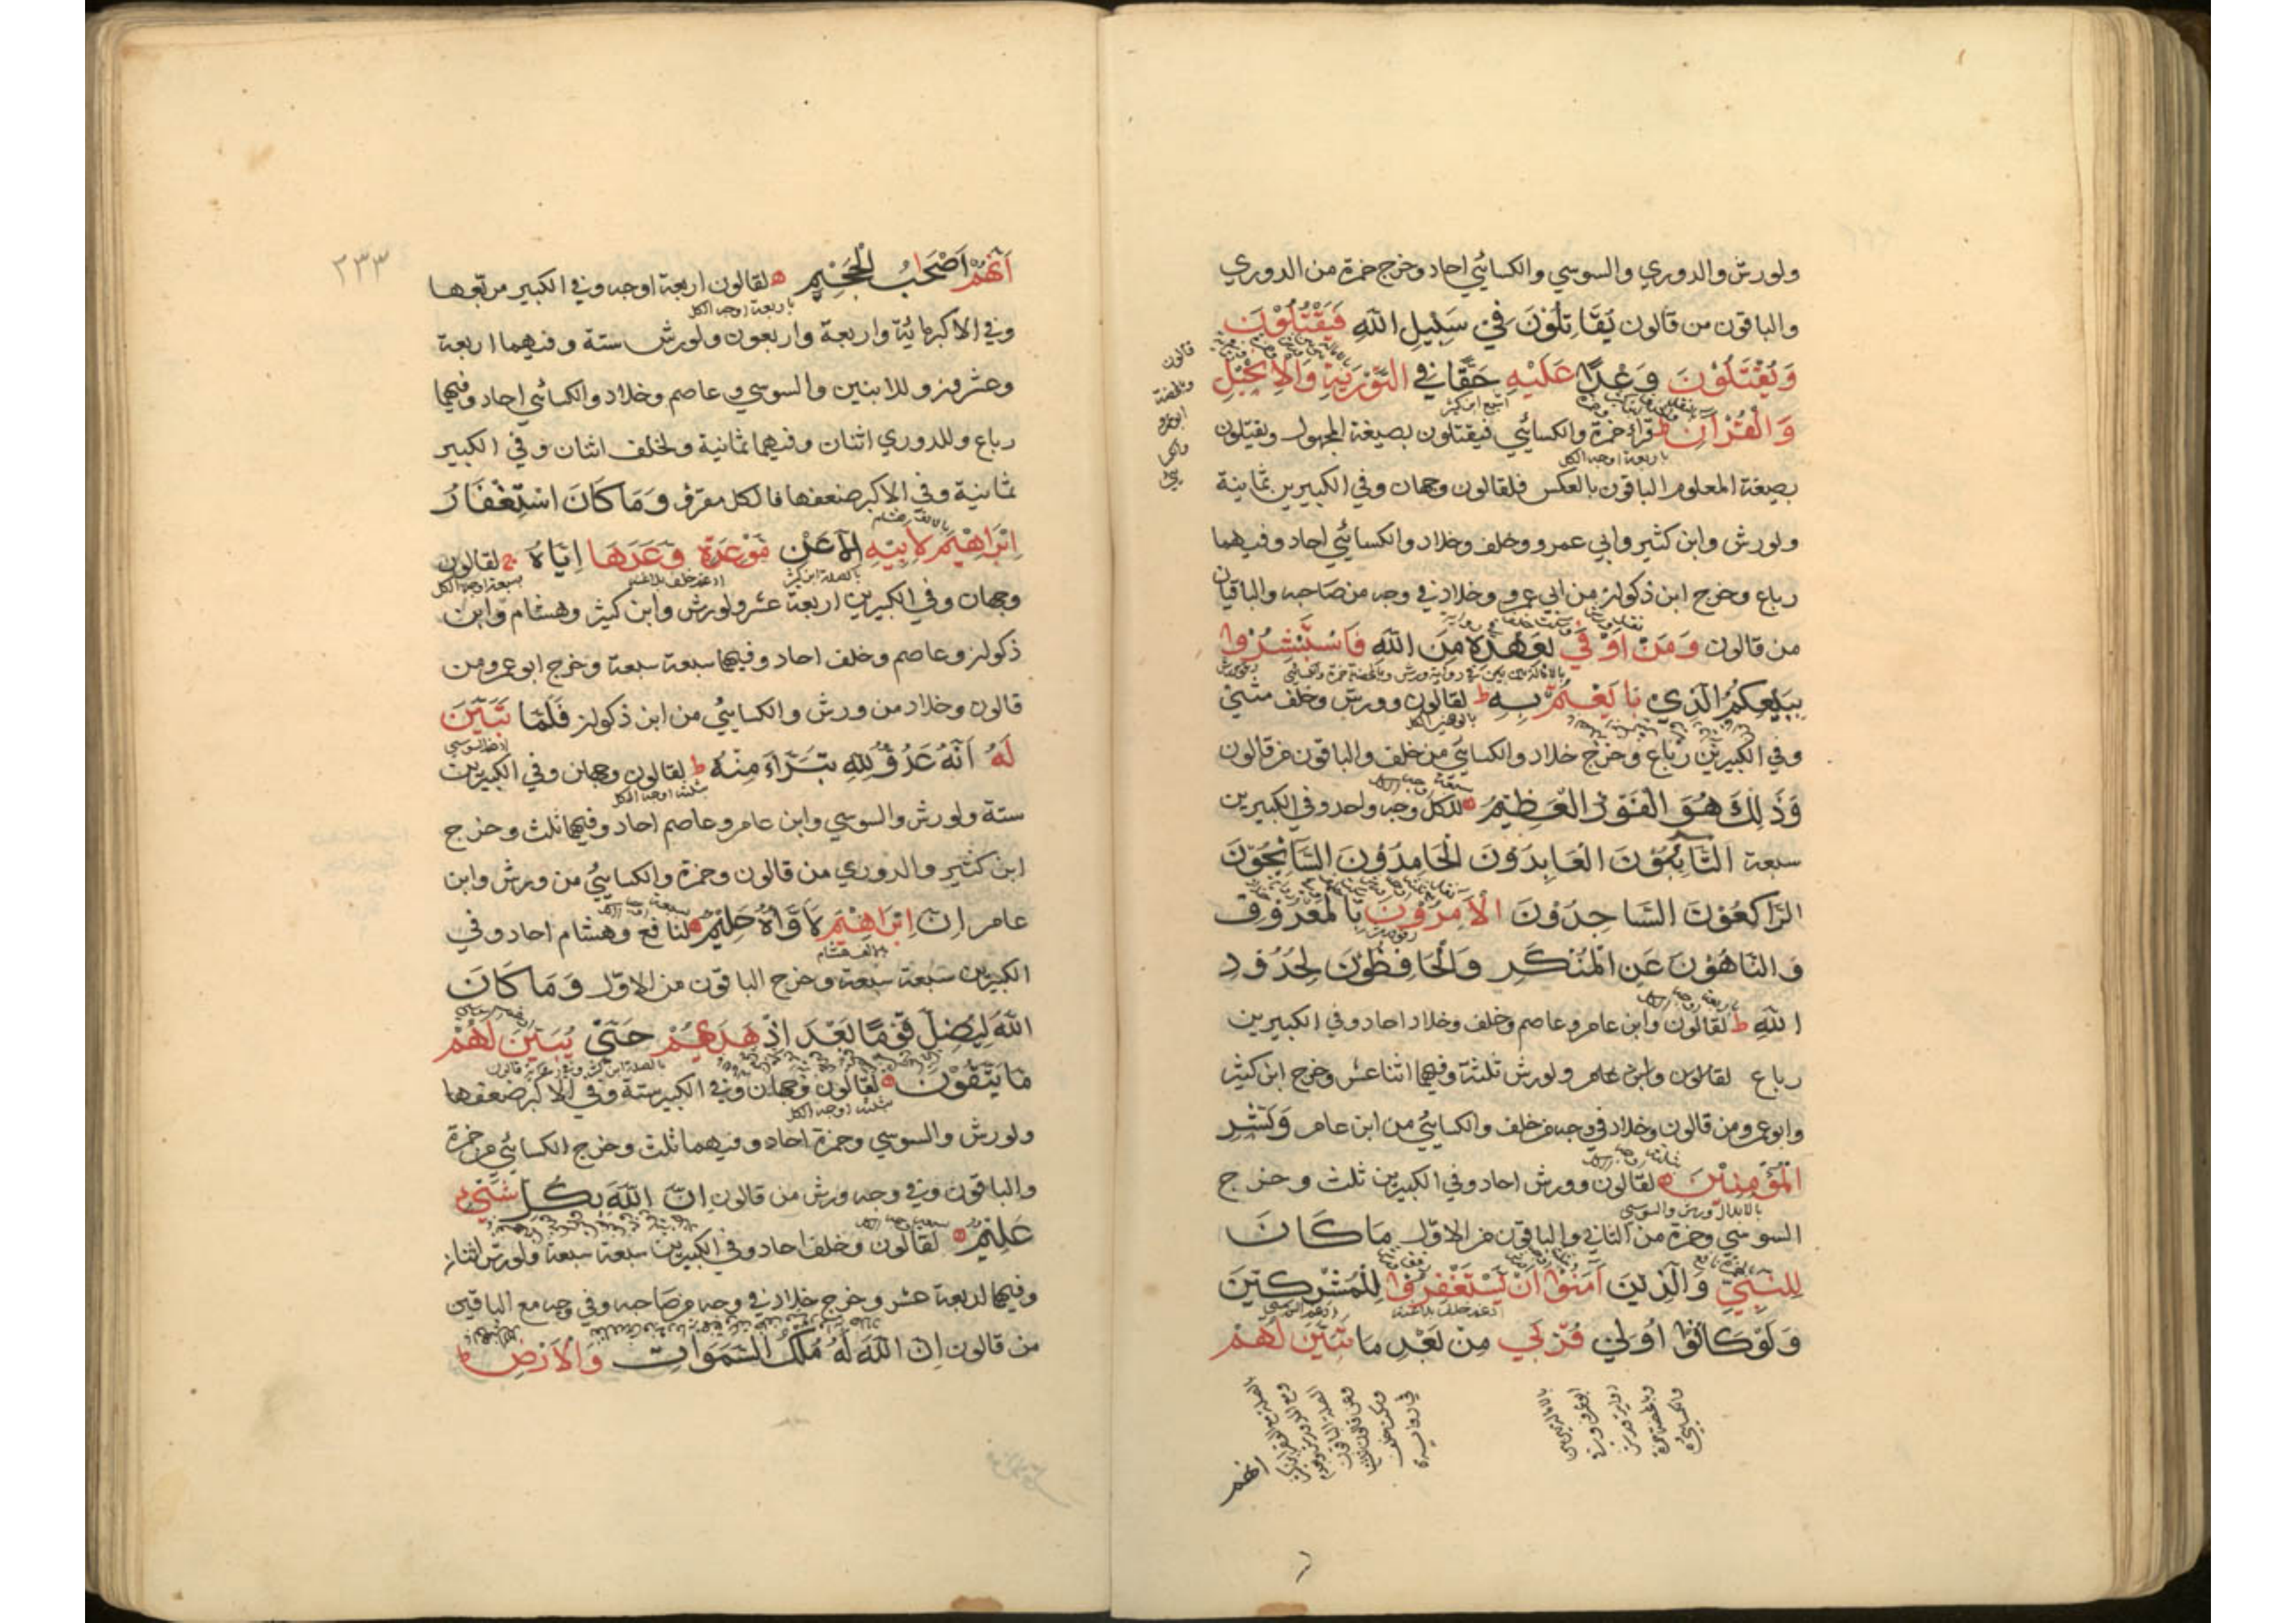 ولورش والدوري والسوسي والكسائي احاد وخرج حمزة من الدوري
والباقون من قالون يُقَاتِلُونَ فِي سَبِيلِ اللَّهِ فَيَقْتُلُوْنَ
وَيُقْتَلُوْنَ وَعْدًا عَلَيْهِ حَقًّا فِي التَّوْرَيةِ وَالْاِنْجِيْلِ
وَالْقُرْآنِ ط قراء حمزة والكسائي فيقتلون بصيغة المجهول ويقتلون
باربعة اوجه الكل
بصيغة المعلوم الباقون بالعكس فلقالون وجهان وفي الكبيرين ثمانية
ولورش وابن كثير وابي عمرو وخلف وخلاد والكسائي احاد وفيهما
رباع وخرج ابن ذكوان من ابي عمرو وخلاد في وجه من صاحبه والباقيان
من قالون وَمَنْ اَوْفَي بِعَهْدِهِ مِنَ اللَّهِ فَاسْتَبْشِرُوا
بِبَيْعِكُمُ الَّذِي بَايَعْتُمْ بِهِ ط لقالون وورش وخلف مثني
وفي الكبيرين رباع وخرج خلاد والكسائي من خلف والباقون من قالون
وَذَلِكَ هُوَ الْفَوْزُ الْعَظِيْمُ للكل وجه واحد وفي الكبيرين
سبعة التَّائِبُوْنَ الْعَابِدُوْنَ الْحَامِدُوْنَ السَّائِحُوْنَ
الرَّاكِعُوْنَ السَّاجِدُوْنَ الْآمِرُوْنَ بِالْمَعْرُوْفِ
وَالنَّاهُوْنَ عَنِ الْمُنْكَرِ وَالْحَافِظُوْنَ لِحُدُوْدِ
اللَّهِ ط لقالون وابن عامر وعاصم وخلف وخلاد احاد وفي الكبيرين
رباع لقالون وابن عامر ولورش ثلثة وفيها اثنا عشر وخرج ابن كثير
وابو عمرو من قالون وخلاد في وجه من خلف والكسائي من ابن عامر وَبَشِّرِ
الْمُؤْمِنِيْنَ لقالون وورش احاد وفي الكبيرين ثلث وخرج
بالابدال ورش والسوسي
السوسي وحمزة من الثاني والباقون من الاوّل مَا كَانَ
لِلنَّبِيِّ وَالَّذِيْنَ آمَنُوْا اَنْ يَسْتَغْفِرُوْا لِلْمُشْرِكِيْنَ
وَلَوْ كَانُوْا اُولِي قُرْبَي مِنْ بَعْدِ مَا تَبَيَّنَ لَهُمْ
انهم
٢٣٣
اَنَّهُمْ اَصْحَابُ الْجَحِيْمِ لقالون اربعة اوجه وفي الكبير مربعها
باربعة اوجه الكل
وفي الاكبر مائة واربعة واربعون ولورش ستة وفيهما اربعة
وعشرون وللابنين والسوسي وعاصم وخلاد والكسائي احاد وفيها
رباع وللدوري اثنان وفيهما ثمانية ولخلف اثنان وفي الكبير
ثمانية وفي الاكبر ضعفها فالكل مفرق وَمَا كَانَ اسْتِغْفَارُ
اِبْرَاهِيْمَ لِاَبِيْهِ اِلَّا عَنْ مَوْعِدَةٍ وَعَدَهَا اِيَّاهُ ج لقالون
وجهان وفي الكبيرين اربعة عشر ولورش وابن كثير وهشام وابن
ذكوان وعاصم وخلف احاد وفيها سبعة سبعة وخرج ابو عمرو من
قالون وخلاد من ورش والكسائي من ابن ذكوان فَلَمَّا تَبَيَّنَ
لَهُ اَنَّهُ عَدُوٌّ لِلَّهِ تَبَرَّاَ مِنْهُ ط لقالون وجهان وفي الكبيرين
ثلثة اوجه الكل
ستة ولورش والسوسي وابن عامر وعاصم احاد وفيها ثلث وخرج
ابن كثير والدوري من قالون وحمزة والكسائي من ورش وابن
عامر اِنَّ اِبْرَاهِيْمَ لَاَوَّاهٌ حَلِيْمٌ لنافع وهشام احاد وفي
الكبيرين سبعة سبعة وخرج الباقون من الاوّل وَمَا كَانَ
اللَّهُ لِيُضِلَّ قَوْمًا بَعْدَ اِذْ هَدَيهُمْ حَتَّي يُبَيِّنَ لَهُمْ
مَا يَتَّقُوْنَ لقالون وجهان وفي الكبير ستة وفي الاكبر ضعفها
ثلثة اوجه الكل
ولورش والسوسي وحمزة احاد وفيهما ثلث وخرج الكسائي من حمزة
والباقون وفي وجه ورش من قالون اِنَّ اللَّهَ بِكُلِّ شَيْءٍ
عَلِيْمٌ لقالون وخلف احاد وفي الكبيرين سبعة سبعة ولورش اثنان
وفيها اربعة عشر وخرج خلاد في وجه من صاحبه وفي وجه مع الباقين
من قالون اِنَّ اللَّهَ لَهُ مُلْكُ السَّمَوَاتِ وَالْاَرْضِ ط